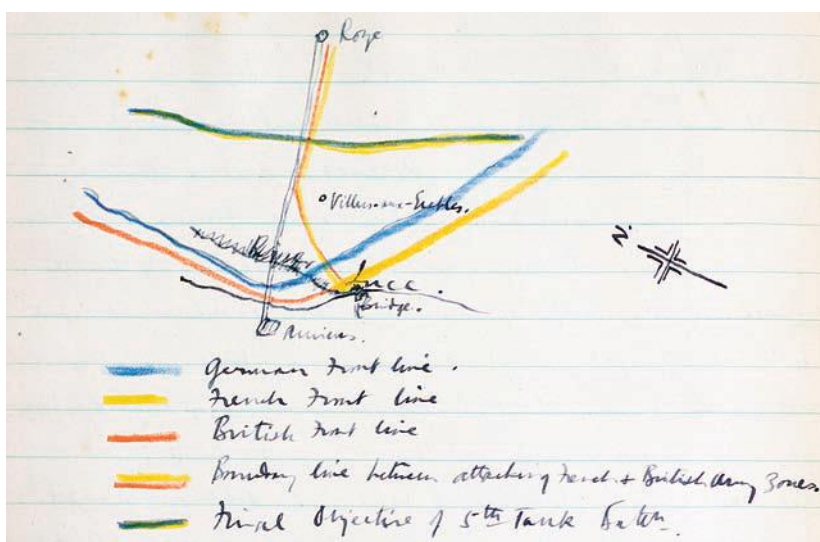 Roye
Villers-aux-Erables.
N
Luce.
Bridge.
Amiens.
German Front line.
French Front line
British Front line
Boundary line between attacking French & British Army Zones.
Final Objective of 5th Tank Battn.